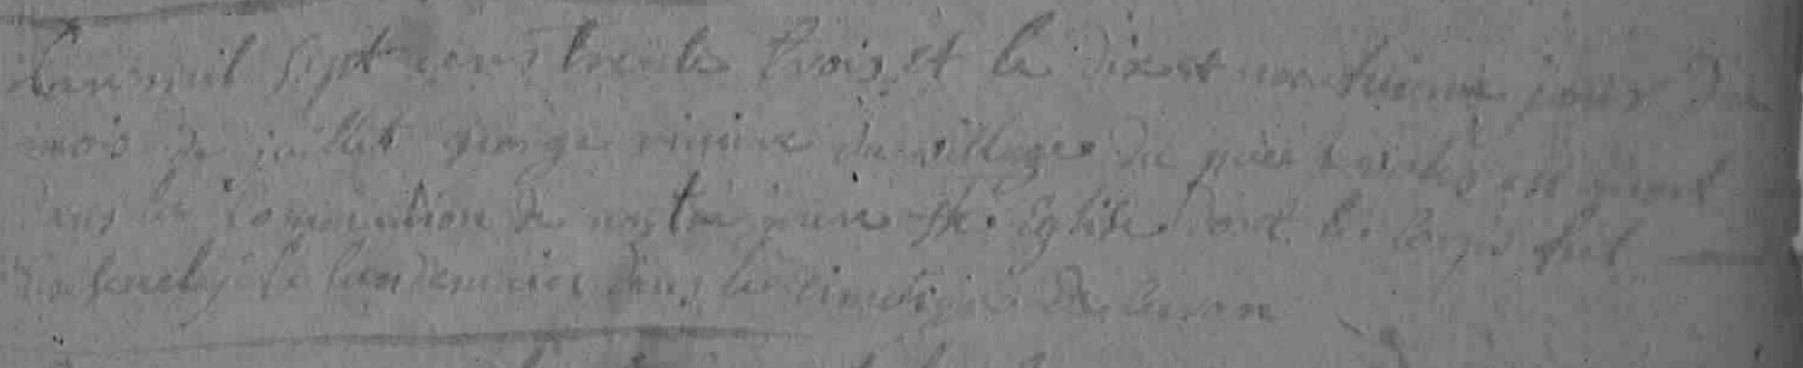 Lan mil sept cens trente trois et le dix et neuvieme jour du
mois de juillet george du village du est mort
dans la communion de nostre mere Ste. Eglise dont le corps fut
le lendemain dans le cimetiere de